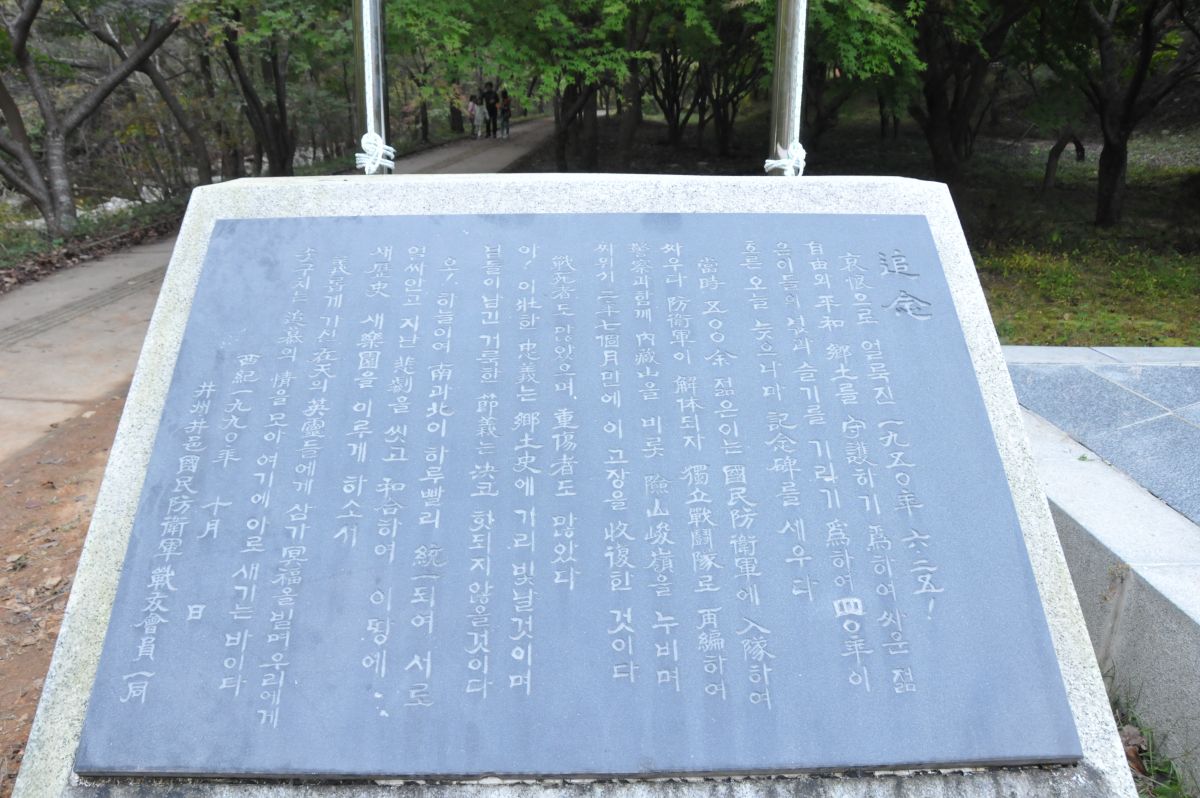 追念
哀恨으로 얼룩진 一九五〇年 六·二五!
自由와 平和 鄕土를 守護하기 爲하여 싸운 젊
은이들의 넋과 슬기를 기리기 爲하여 四〇年이
흐른 오늘 늦으나마 記念碑를 세우다
當時 五〇〇余 젊은이는 國民防衛軍에 入隊하여
싸우다 防衛軍이 解体되자 獨立戰鬪隊로 再編하여
警察과 함께 內藏山을 비롯 險山峻嶺을 누비며
싸우기 二十七個月만에 이 고장을 收復한 것이다
戰死者도 많았으며, 重傷者도 많았다
아! 이 壯한 忠義는 鄕土史에 기리 빛날것이며
님들이 남긴 거룩한 節義는 決코 헛되지 않을것이다
오! 하늘이여 南과 北이 하루빨리 統一되여 서로
얼싸안고 지난 悲劇을 씻고 和合하여 이 땅에
새歷史 새樂園을 이루게 하소서
義롭게 가신 在天의 英靈들에게 삼가 冥福을 빌며 우리에게
솟구치는 追慕의 情을 모아 여기에 아로새기는 바이다
西紀一九九〇年 十月 日
井州井邑國民防衛軍 戰友會員 一同